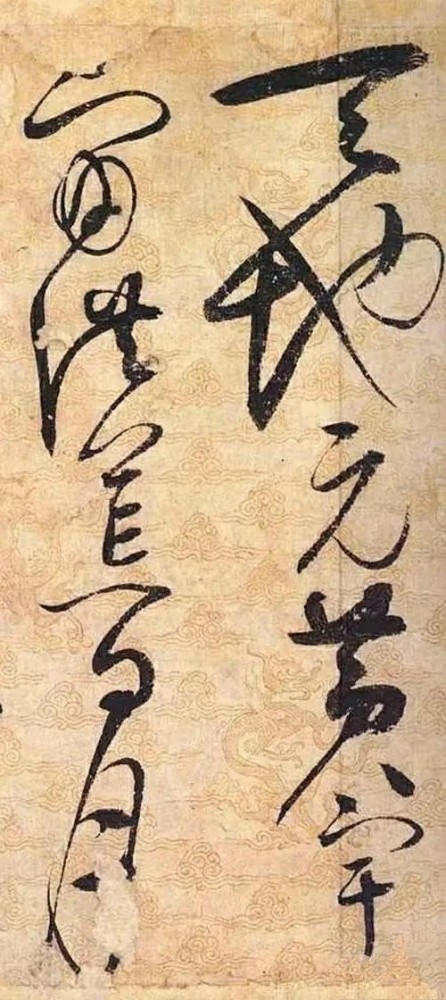 天地元黃宇
宙洪荒日月